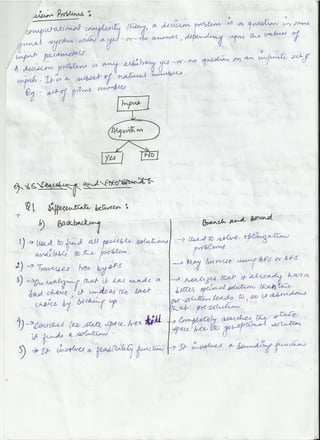 Decision Problems :
computational complexity theory, a decision problem is a question in some
formal system with a yes-or-no answer, depending upon the values of
input parameters.
A decision problem is any arbitrary yes-or-no question on an infinite set of
inputs. It is a subset of natural numbers
Eg: set of prime number
Input
Algorithm
Yes
NO
Q1. Differentiate between :
1) Backtracking
Branch and Bound
1) → Used to find all possible solutions
available to the problem.
→ Used to solve optimization
problems
2) → Traverses tree by DFS
→ May traverse using BFS or DFS.
3) → On realizing that it has made a
bad choice, it undoes the last
choice by backing up.
→ realizes that it already has a
better optimal solution
solution leads to, so it abandons
that pre-solution.
4) → Searches the state space tree till
it finds a solution.
→ Completely searches the state
space tree to get optimal solution
5) → It involves a feasibility function
→ It involves a bounding function